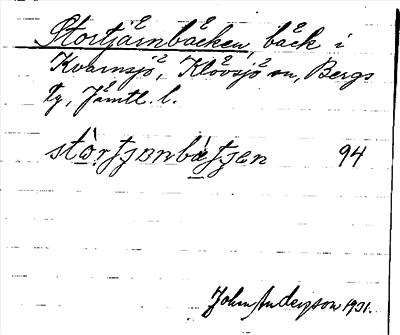 Stortjärnbäcken, bäck i
Kvarnsjö, Klövsjö sn, Bergs
tg, Jämtl. l.
94
John Anderzson 1931.